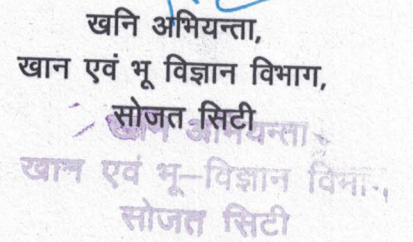 खनि अभियन्ता,
खान एवं भू विज्ञान विभाग,
सोजत सिटी
खनि अभियन्ता
खान एवं भू–विज्ञान
सोजत सिटी